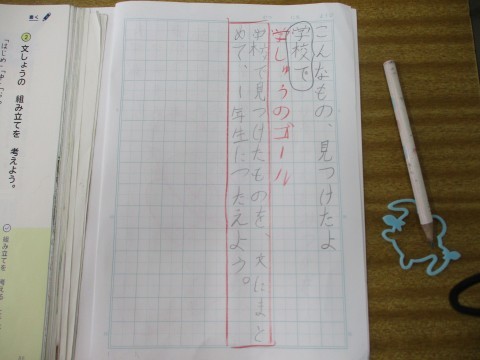 こんなもの、見つけたよ
学校で
学しゅうのゴール
学校で見つけたものを、文にまと
めて、1年生につたえよう。
書く
2 文しょうの 組み立てを 考えよう。